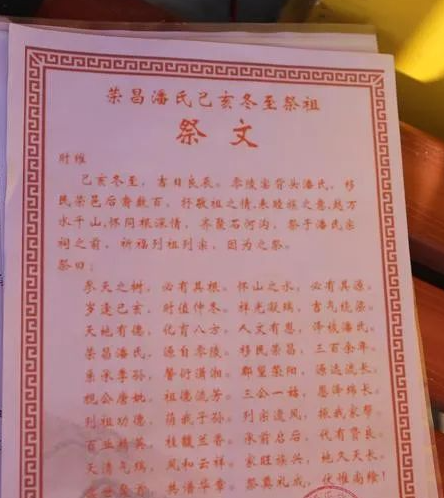 荣昌潘氏己亥冬至祭祖
祭文
时维
己亥冬至，吉日良辰。零陵宝背头潘氏，移
民荣邑后裔数百，抒敬祖之情,表睦族之意,越万
水千山,怀同根深情，齐聚石河沟，祭于潘氏宗
祠之前，祈福列祖列宗，因为之祭。
祭曰：
参天之树，必有其根。怀山之水，必有其源。
岁逢己亥，时值仲冬。祥光凝瑞，吉气绕梁。
天地有德，化育八方，人文有恩，泽被潘氏。
荣昌潘氏，源自零陵。移民荣昌，三百余年。
季孙，繁衍潇湘。郡望荥阳，源远流长。
祖德流芳。三公一梅，恩泽绵长。
列祖功德，荫我子孙。列宗遗风，振我家邦。
百业精英，桂馥兰香。承前启后，代有贤良。
天清气瑞，风和云祥。家旺族兴，地久天长。
共谱华章。祭奠礼成，伏惟尚飨！